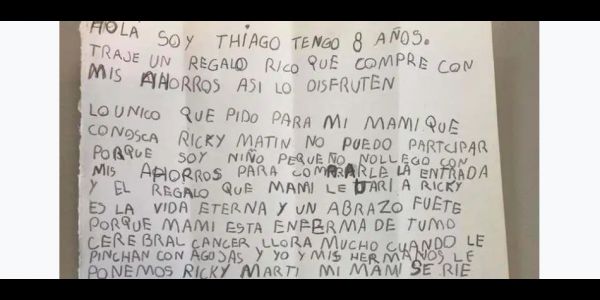 HOLA SOY THIAGO TENGO 8 AÑOS.
TRAJE UN REGALO RICO QUE COMPRE CON
MIS AHORROS ASI LO DISFRUTEN
LO UNICO QUE PIDO PARA MI MAMI QUE
CONOSCA RICKY MATIN NO PUEDO PARTCIPAR
PORQUE SOY NIÑO PEQUEÑO NOLLEGO CON
MIS AHORROS PARA COMPRARLE LA ENTRADA
Y EL REGALO QUE MAMI LE DARI A RICKY
ES LA VIDA ETERNA Y UN ABRAZO FUETE
PORQUE MAMI ESTA ENFERMA DE TUMO
CEREBRAL CANCER LLORA MUCHO CUANDO LE
PINCHAN CON AGUJAS Y YO Y MIS HERMANOS LE
PONEMOS RICKY MARTI MI MAMI SE RIE